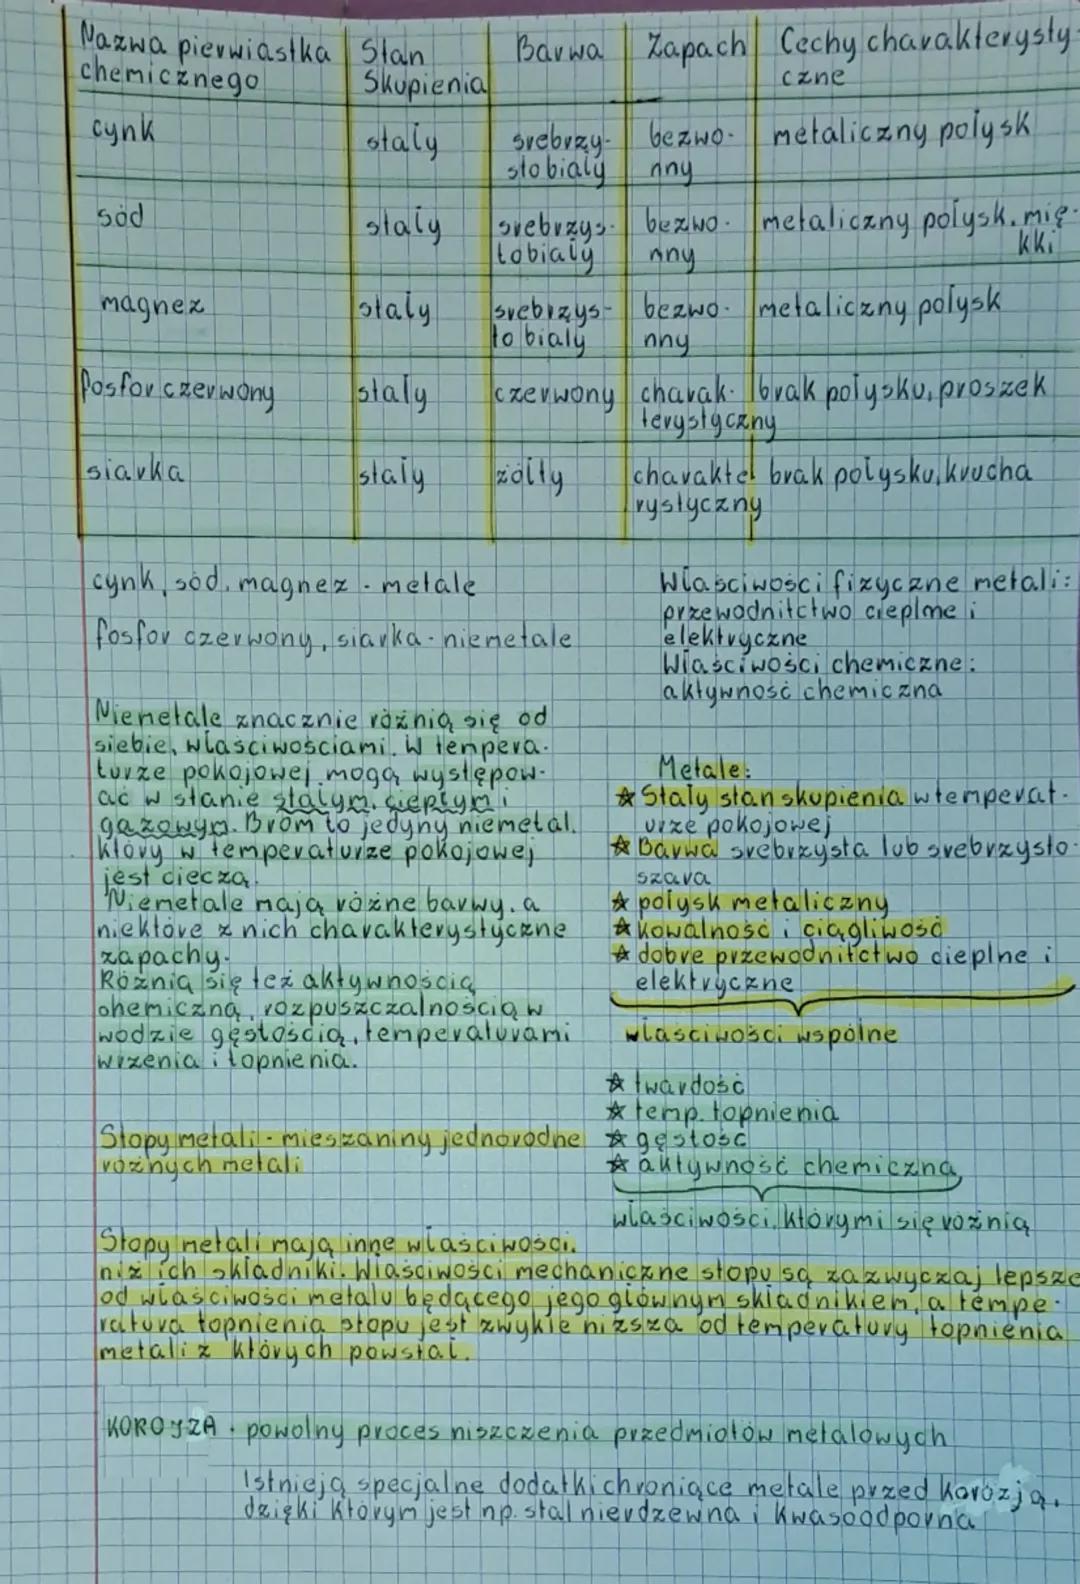 Nazwa pierwiastka chemicznego | Stan Skupienia | Barwa | Zapach | Cechy charakterysty-czne
cynk | stały | srebrzy-stobiały | bezwo-nny | metaliczny połysk
sód | stały | srebrzys-tobiały | bezwo-nny | metaliczny połysk, mię-kki
magnez | stały | srebrzys-to biały | bezwo-nny | metaliczny połysk
fosfor czerwony | stały | czerwony | charak-terystyczny | brak połysku, proszek
siarka | stały | żółty | charakte-rystyczny | brak połysku, krucha
cynk, sód, magnez - metale
fosfor czerwony, siarka - niemetale
Właściwości fizyczne metali:
przewodnitctwo cieplne i
elektryczne
Właściwości chemiczne:
aktywność chemiczna
Niemetale znacznie różnią się od
siebie, właściwościami. W tempera-
turze pokojowej mogą występow-
ać w stanie stałym, ciepłym i
gazowym. Brom to jedyny niemetal,
który w temperaturze pokojowej
jest cieczą.
Niemetale mają różne barwy, a
niektóre z nich charakterystyczne
zapachy.
Różnią się też aktywnością
chemiczną, rozpuszczalnością w
wodzie gęstością, temperaturami
wrzenia i topnienia.
Metale:
☆ Stały stan skupienia w temperat-
urze pokojowej
☆ Barwa srebrzysta lub srebrzysto-
szara
☆ połysk metaliczny
☆ kowalność i ciągliwość
☆ dobre przewodnitctwo cieplne i
elektryczne
właściwości wspólne
☆ twardość
☆ temp. topnienia
☆ gęstość
☆ aktywność chemiczna
właściwości, którymi się różnią
Stopy metali - mieszaniny jednorodne
różnych metali
Stopy metali mają inne właściwości,
niż ich składniki. Właściwości mechaniczne stopu są zazwyczaj lepsze
od właściwości metalu będącego jego głównym składnikiem, a tempe-
ratura topnienia stopu jest zwykle niższa od temperatury topnienia
metali z których powstał.
KOROZJA - powolny proces niszczenia przedmiotów metalowych
Istnieją specjalne dodatki chroniące metale przed korozją,
dzięki którym jest np. stal nierdzewna i kwasoodporna